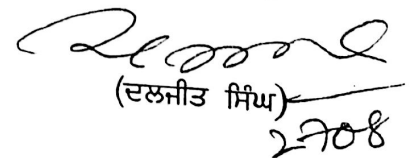 (ਦਲਜੀਤ ਸਿੰਘ)
2708